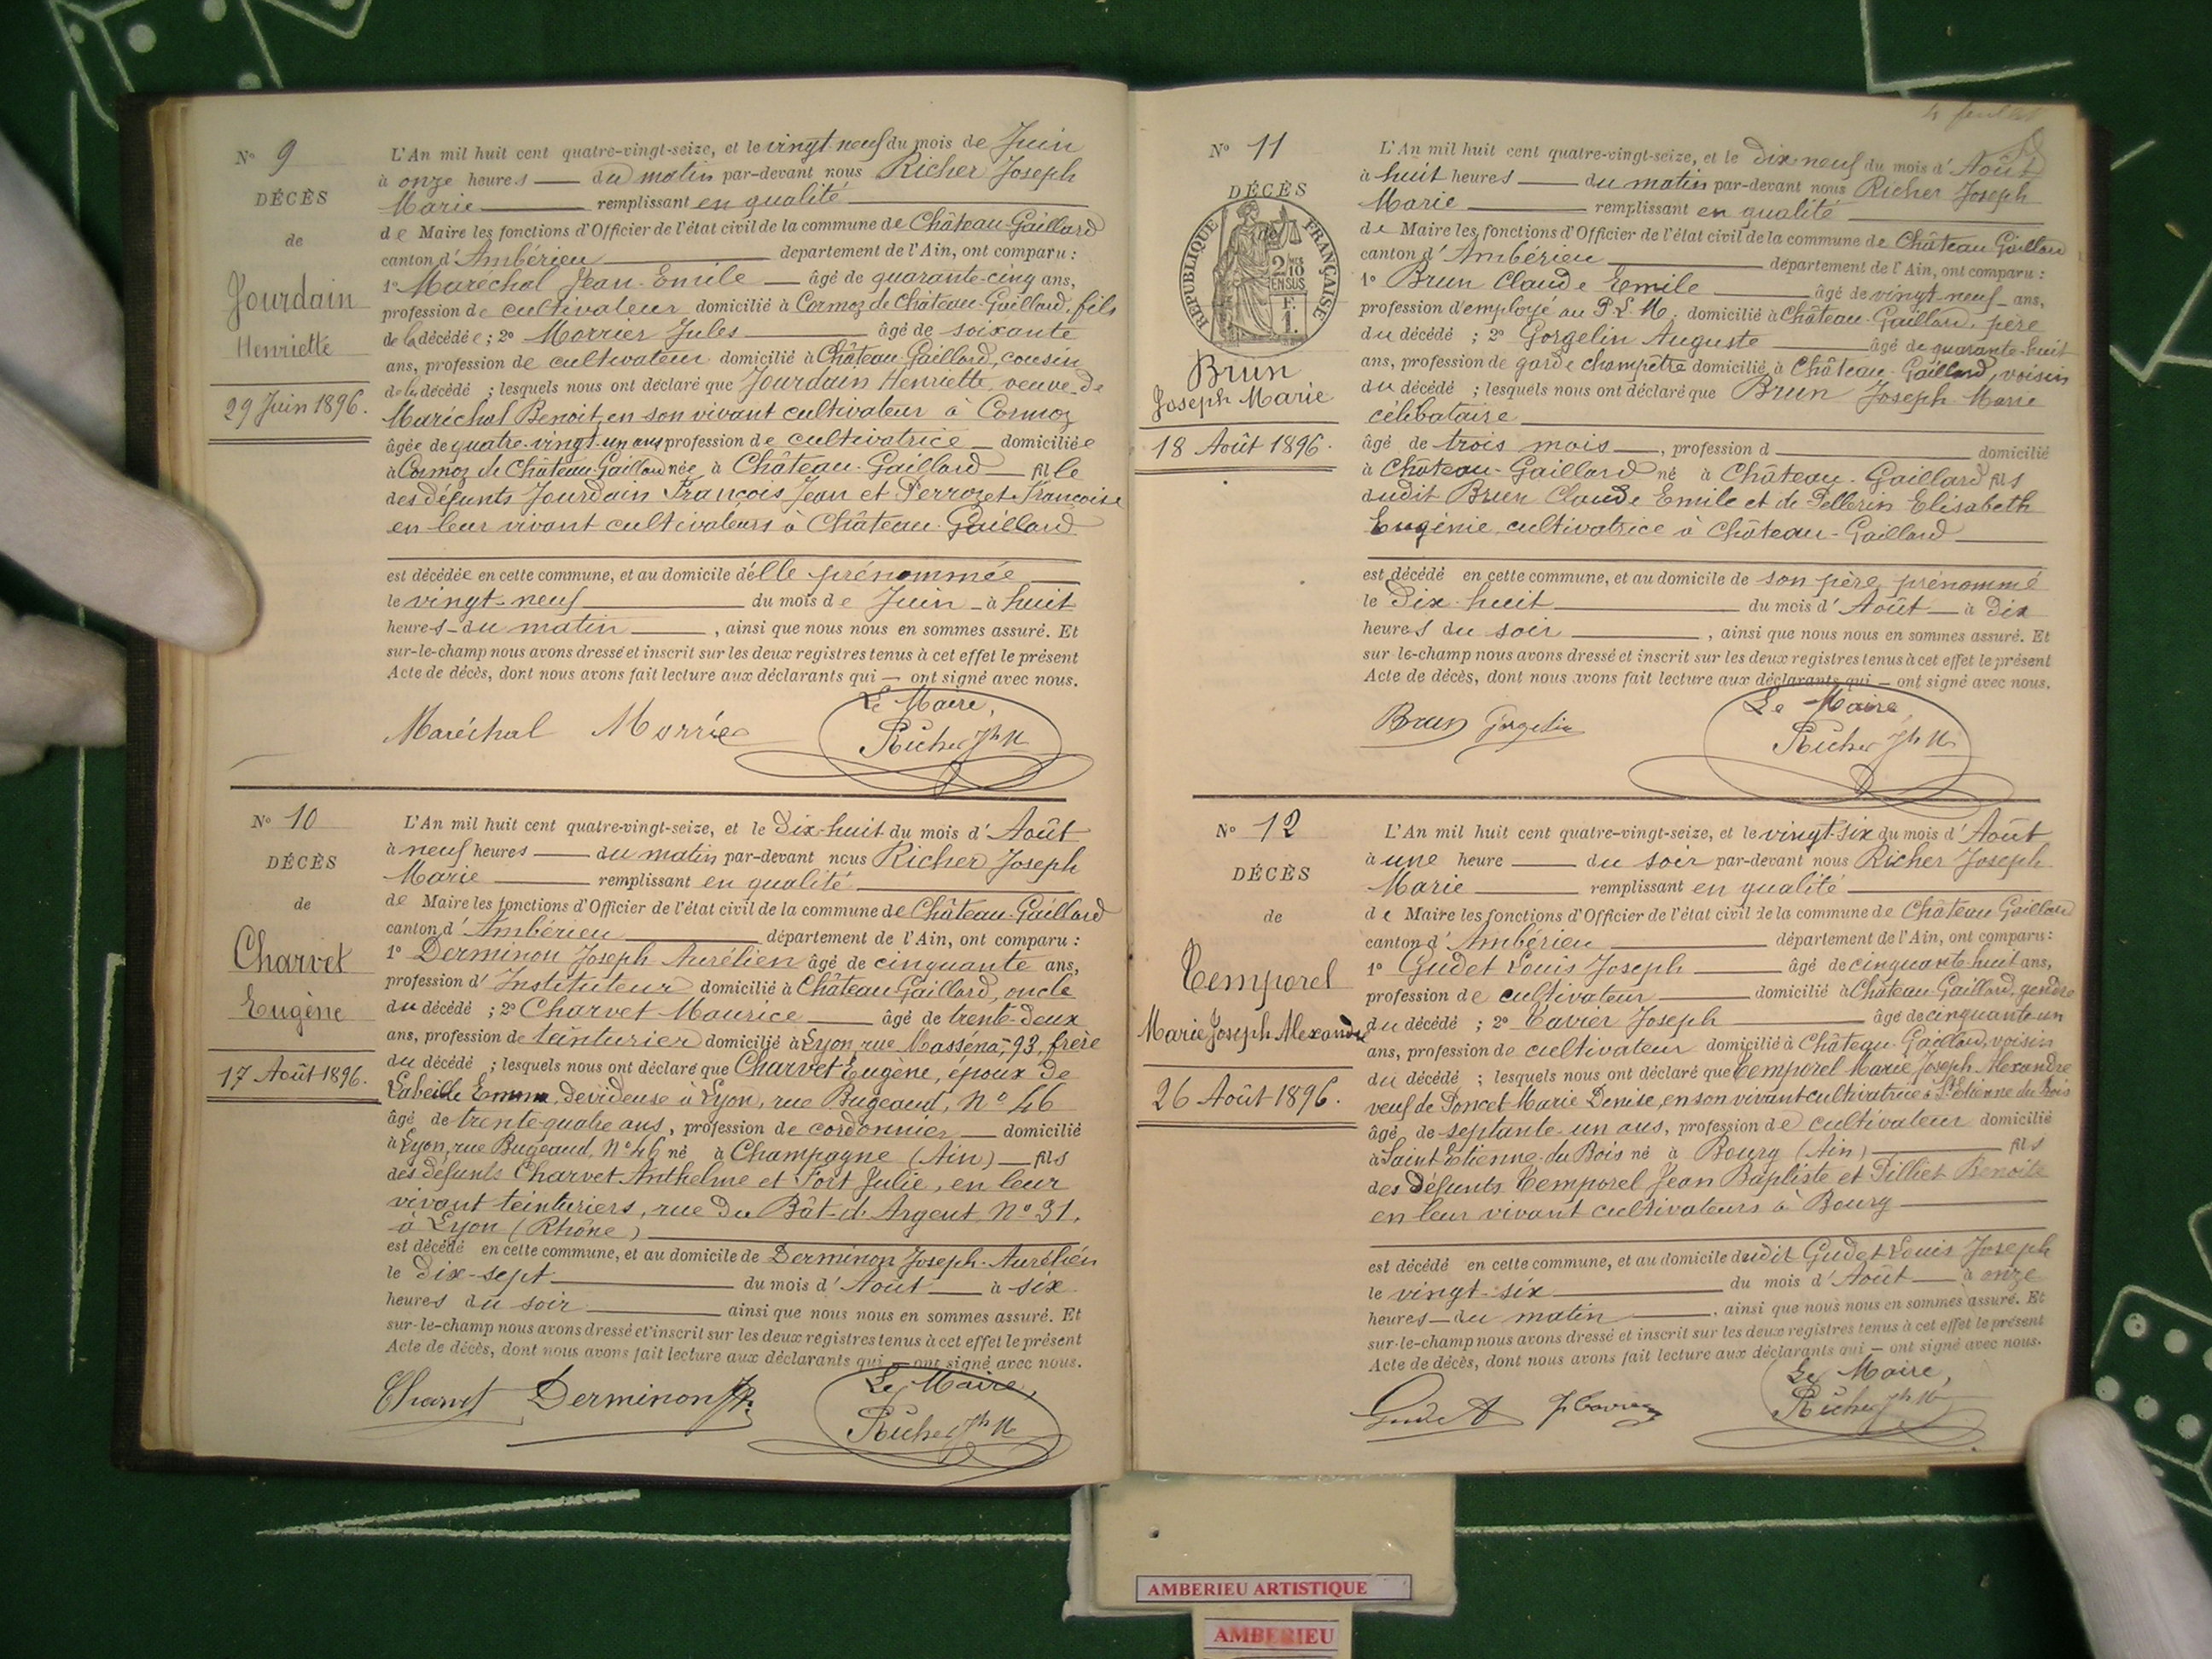 N° 9
DÉCÈS
de
Jourdain
Henriette
29 Juin 1896.
L'An mil huit cent quatre-vingt-seize, et le vingt-neuf du mois de Juin
à onze heures — du matin par-devant nous Richer Joseph
Marie — remplissant en qualité
de Maire les fonctions d'Officier de l'état civil de la commune de Château-Gaillard
canton d'Ambérieu département de l'Ain, ont comparu :
1° Maréchal Jean-Emile — âgé de quarante-cinq ans,
profession de cultivateur domicilié à Cormoz de Château-Gaillard, fils
de la décédée ; 2° Morrier Jules âgé de soixante
ans, profession de cultivateur domicilié à Château-Gaillard, cousin
de la décédé ; lesquels nous ont déclaré que Jourdain Henriette, veuve de
Maréchal Benoit, en son vivant cultivateur à Cormoz
âgée de quatre-vingt-un ans profession de cultivatrice — domiciliée
à Cormoz de Château-Gaillard née à Château-Gaillard fille
des défunts Jourdain François Jean et Perrozet Françoise
en leur vivant cultivateurs à Château-Gaillard
est décédée en cette commune, et au domicile d'elle prénommée
le vingt-neuf du mois de Juin — à huit
heures — du matin , ainsi que nous nous en sommes assuré. Et
sur-le-champ nous avons dressé et inscrit sur les deux registres tenus à cet effet le présent
Acte de décès, dont nous avons fait lecture aux déclarants qui — ont signé avec nous.
Le Maire,
Maréchal Morrier Richer Jh M
N° 10
DÉCÈS
de
Charvet
Eugène
17 Août 1896.
L'An mil huit cent quatre-vingt-seize, et le Dix-huit du mois d'Août
à neuf heures — du matin par-devant nous Richer Joseph
Marie — remplissant en qualité
de Maire les fonctions d'Officier de l'état civil de la commune de Château-Gaillard
canton d'Ambérieu département de l'Ain, ont comparu :
1° Derminon Joseph Aurélien âgé de cinquante ans,
profession d'Instituteur domicilié à Château-Gaillard, oncle
du décédé ; 2° Charvet Maurice — âgé de trente-deux
ans, profession de teinturier domicilié à Lyon, rue Masséna, 93, frère
du décédé ; lesquels nous ont déclaré que Charvet Eugène, époux de
Labeille Emma, dévideuse à Lyon, rue Bugeaud, N° 46
âgé de trente-quatre ans, profession de cordonnier — domicilié
à Lyon, rue Bugeaud, N° 46 né à Champagne (Ain) — fils
des défunts Charvet Anthelme et Fort Julie, en leur
vivant teinturiers, rue du Bât-d'Argent, N° 31,
à Lyon (Rhône)
est décédé en cette commune, et au domicile de Derminon Joseph-Aurélien
le dix-sept du mois d'Août — à six
heures du soir ainsi que nous nous en sommes assuré. Et
sur-le-champ nous avons dressé et inscrit sur les deux registres tenus à cet effet le présent
Acte de décès, dont nous avons fait lecture aux déclarants qui — ont signé avec nous.
Le Maire,
Charvet Derminon Richer Jh M
N° 11
DÉCÈS
RÉPUBLIQUE FRANÇAISE
2/10
EN SUS
F.
1.
Brun
Joseph Marie
18 Août 1896.
L'An mil huit cent quatre-vingt-seize, et le Dix-neuf du mois d'Août
à huit heures — du matin par-devant nous Richer Joseph
Marie — remplissant en qualité
de Maire les fonctions d'Officier de l'état civil de la commune de Château-Gaillard
canton d'Ambérieu département de l'Ain, ont comparu :
1° Brun Claude Emile âgé de vingt-neuf ans,
profession d'employé au P.L.M. domicilié à Château-Gaillard, père
du décédé ; 2° Gorgelin Auguste âgé de quarante-huit
ans, profession de garde champêtre domicilié à Château-Gaillard, voisin
du décédé ; lesquels nous ont déclaré que Brun Joseph Marie
célibataire
âgé de trois mois , profession d domicilié
à Château-Gaillard né à Château-Gaillard fils
dudit Brun Claude Emile et de Pellerin Elisabeth
Eugénie, cultivatrice à Château-Gaillard
est décédé en cette commune, et au domicile de son père, prénommé
le Dix-huit du mois d'Août — à dix
heures du soir , ainsi que nous nous en sommes assuré. Et
sur-le-champ nous avons dressé et inscrit sur les deux registres tenus à cet effet le présent
Acte de décès, dont nous avons fait lecture aux déclarants qui — ont signé avec nous.
Le Maire
Brun Gorgelin Richer Jh M
N° 12
DÉCÈS
de
Temporel
Marie Joseph Alexandre
26 Août 1896.
L'An mil huit cent quatre-vingt-seize, et le vingt-six du mois d'Août
à une heure — du soir par-devant nous Richer Joseph
Marie — remplissant en qualité
de Maire les fonctions d'Officier de l'état civil de la commune de Château Gaillard
canton d'Ambérieu département de l'Ain, ont comparu :
1° Gudet Louis Joseph âgé de cinquante-huit ans,
profession de cultivateur domicilié à Château-Gaillard, gendre
du décédé ; 2° Tavier Joseph âgé de cinquante-un
ans, profession de cultivateur domicilié à Château-Gaillard, voisin
du décédé ; lesquels nous ont déclaré que Temporel Marie Joseph Alexandre
veuf de Poncet Marie Denise, en son vivant cultivatrice à St Etienne du Bois
âgé de septante-un ans, profession de cultivateur domicilié
à Saint Etienne-du Bois né à Bourg (Ain) fils
des défunts Temporel Jean Baptiste et Pilliet Benoite
en leur vivant cultivateurs à Bourg
est décédé en cette commune, et au domicile dudit Gudet Louis Joseph
le vingt-six du mois d'Août — à onze
heures — du matin , ainsi que nous nous en sommes assuré. Et
sur-le-champ nous avons dressé et inscrit sur les deux registres tenus à cet effet le présent
Acte de décès, dont nous avons fait lecture aux déclarants qui — ont signé avec nous.
Le Maire,
Gudet J. Tavier Richer Jh M
AMBERIEU ARTISTIQUE
AMBERIEU